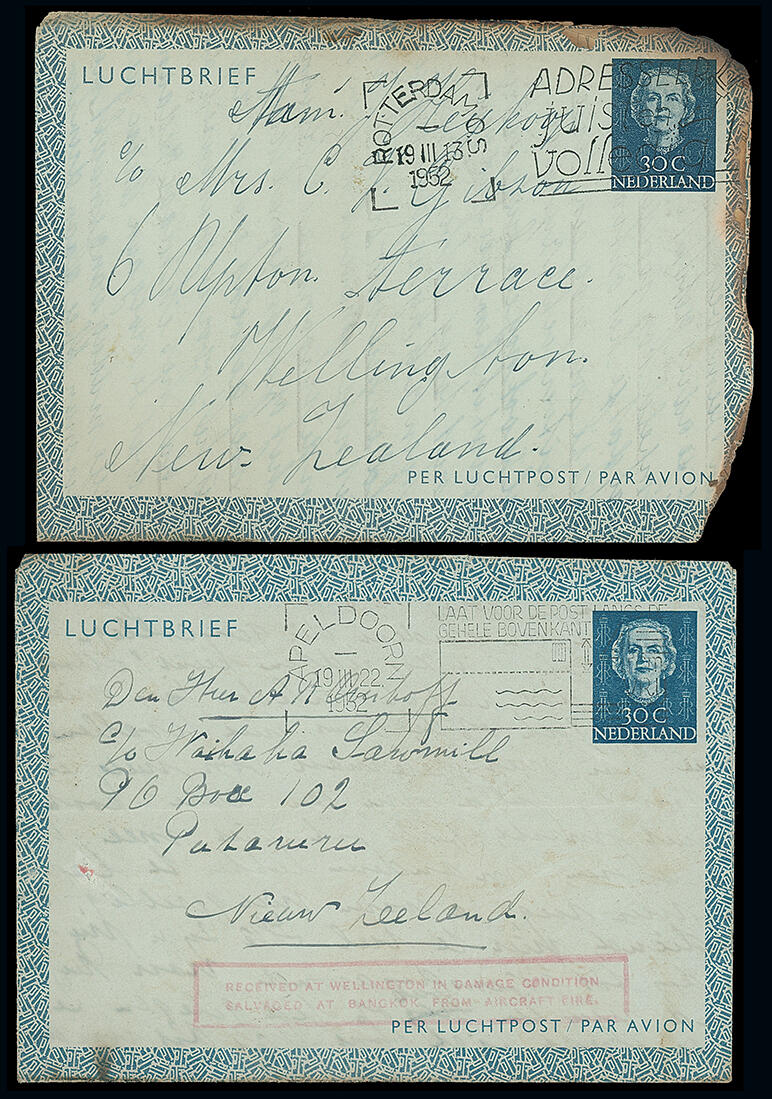 LUCHTBRIEF
ROTTERDAM
19 III 13
1952
ADRESSEER
juist
volledig
30 C
NEDERLAND
c/o Mrs. C. Gibson
6 Upton Terrace.
Wellington.
New. Zealand.
PER LUCHTPOST / PAR AVION
LUCHTBRIEF
APELDOORN
1
19 III 22
1952
LAAT VOOR DE POST LANGS DE
GEHELE BOVENKANT
30 C
NEDERLAND
Den Heer A
c/o Waihaha Sawmill
PO Box 102
Putaruru
Nieuw Zeeland.
RECEIVED AT WELLINGTON IN DAMAGE CONDITION
SALVAGED AT BANGKOK FROM AIRCRAFT FIRE.
PER LUCHTPOST / PAR AVION